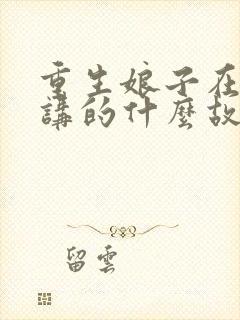 重生娘子在
講的什麼故
留雲